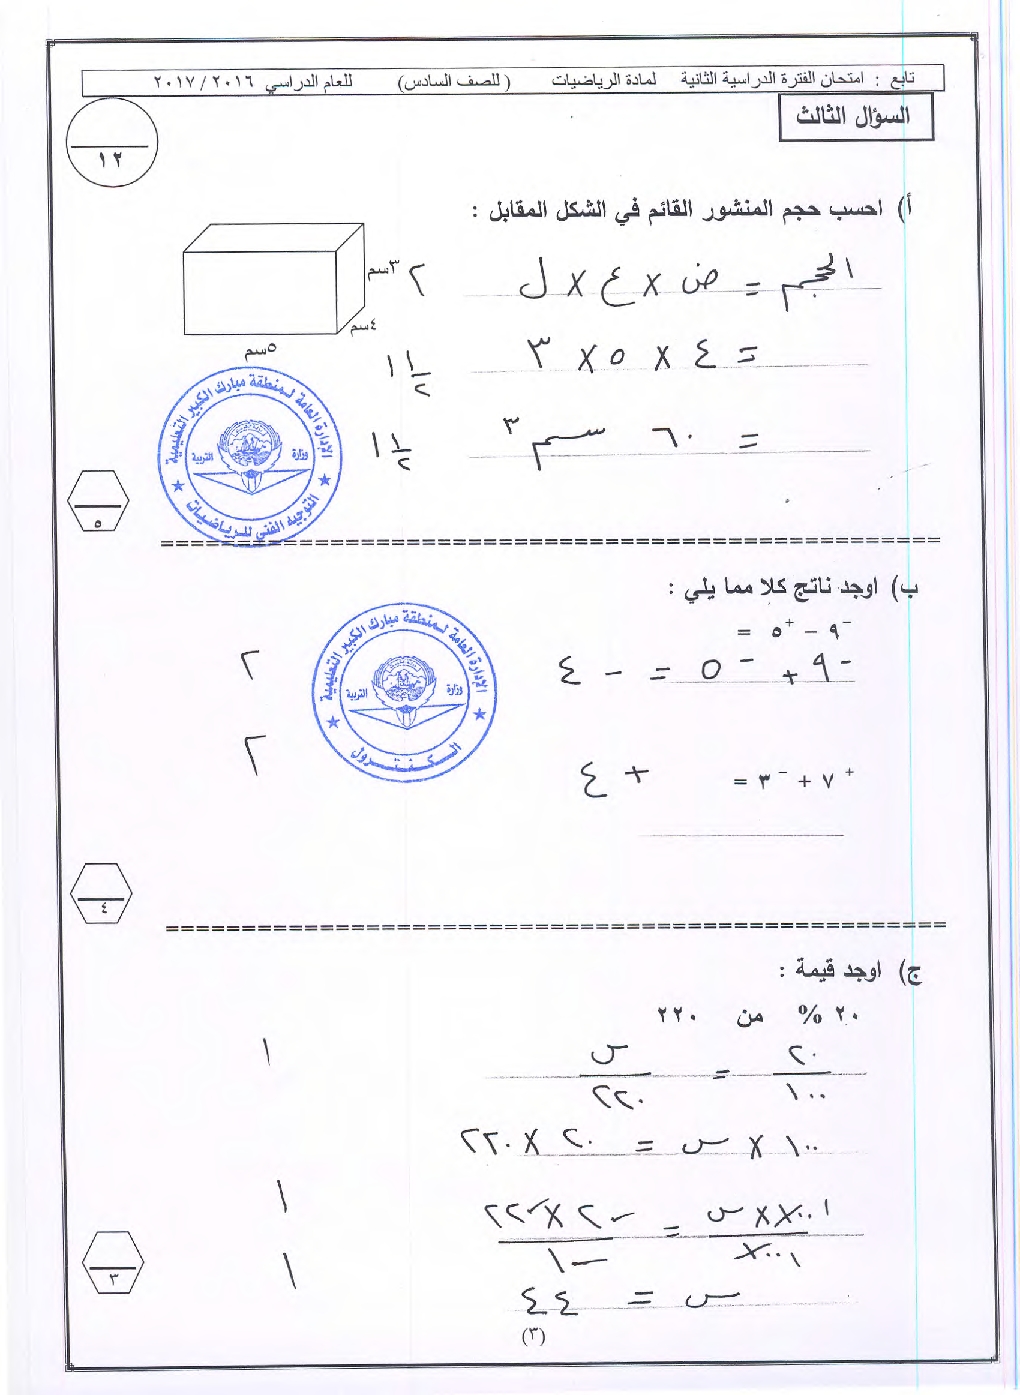 تابع : امتحان الفترة الدراسية الثانية لمادة الرياضيات ( للصف السادس) للعام الدراسي ٢٠١٦ / ٢٠١٧
السؤال الثالث
١٢
أ) احسب حجم المنشور القائم في الشكل المقابل :
الحجم = ض × ع × ل ٢
٣سم
٤سم
٥سم
= ٤ × ٥ × ٣ ١ ١/٢
= ٦٠ سم ٣ ١ ١/٢
الإدارة العامة لمنطقة مبارك الكبير التعليمية
وزارة التربية
التوجيه الفني للرياضيات
٥
ب) اوجد ناتج كلا مما يلي :
⁻٩ − ⁺٥ =
⁻٩ + ⁻٥ = − ٤ ٢
الإدارة العامة لمنطقة مبارك الكبير التعليمية
وزارة التربية
الكنترول
⁺٧ + ⁻٣ = + ٤ ٢
٤
ج) اوجد قيمة :
٢٠ % من ٢٢٠
٢٠/١٠٠ = س/٢٢٠ ١
١٠٠ × س = ٢٠ × ٢٢٠
١٠٠ × س / ١٠٠ = ٢٠ × ٢٢٠ / ١٠٠ ١
س = ٤٤ ١
٣
(٣)